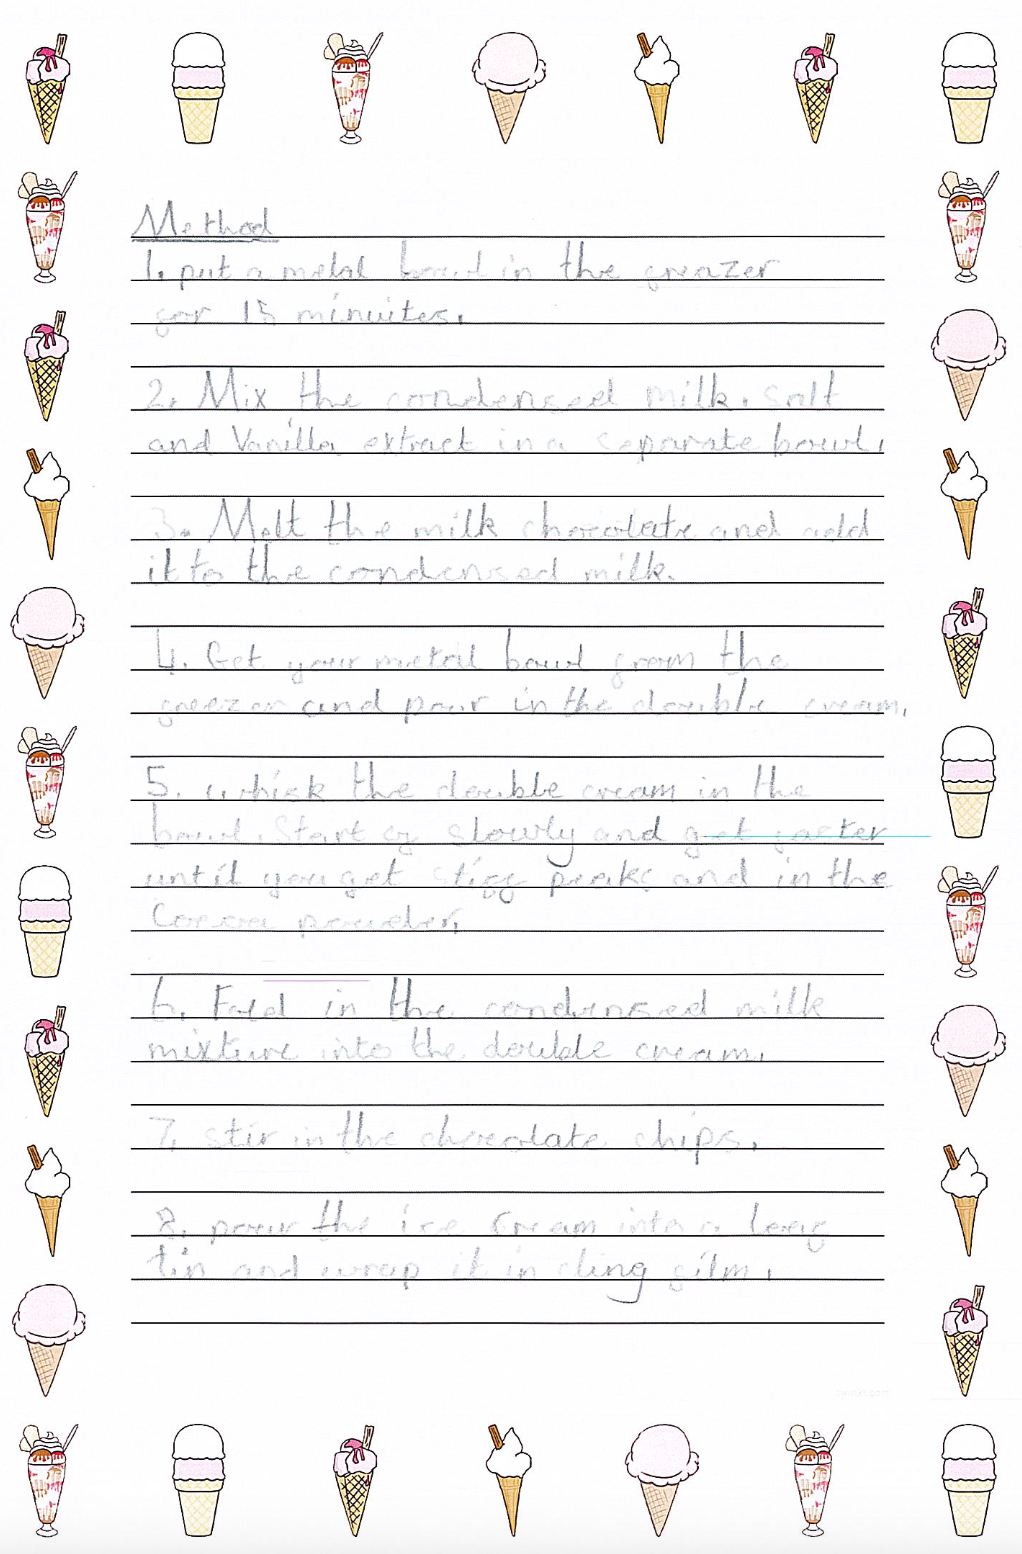 Method
1. put a metal bowl in the freezer
for 15 minuites.
2. Mix the condensed milk, salt
and Vanilla extract in a separate bowl.
3. Melt the milk chocolate and add
it to the condensed milk.
4. Get your metal bowl from the
freezer and pour in the double cream.
5. whisk the double cream in the
bowl. Start of slowly and get faster
until you get stiff peaks and in the
Cocoa powder.
6. Fold in the condensed milk
mixture into the double cream.
7. stir in the chocolate chips.
8. pour the ice cream into a loaf
tin and wrap it in cling film.